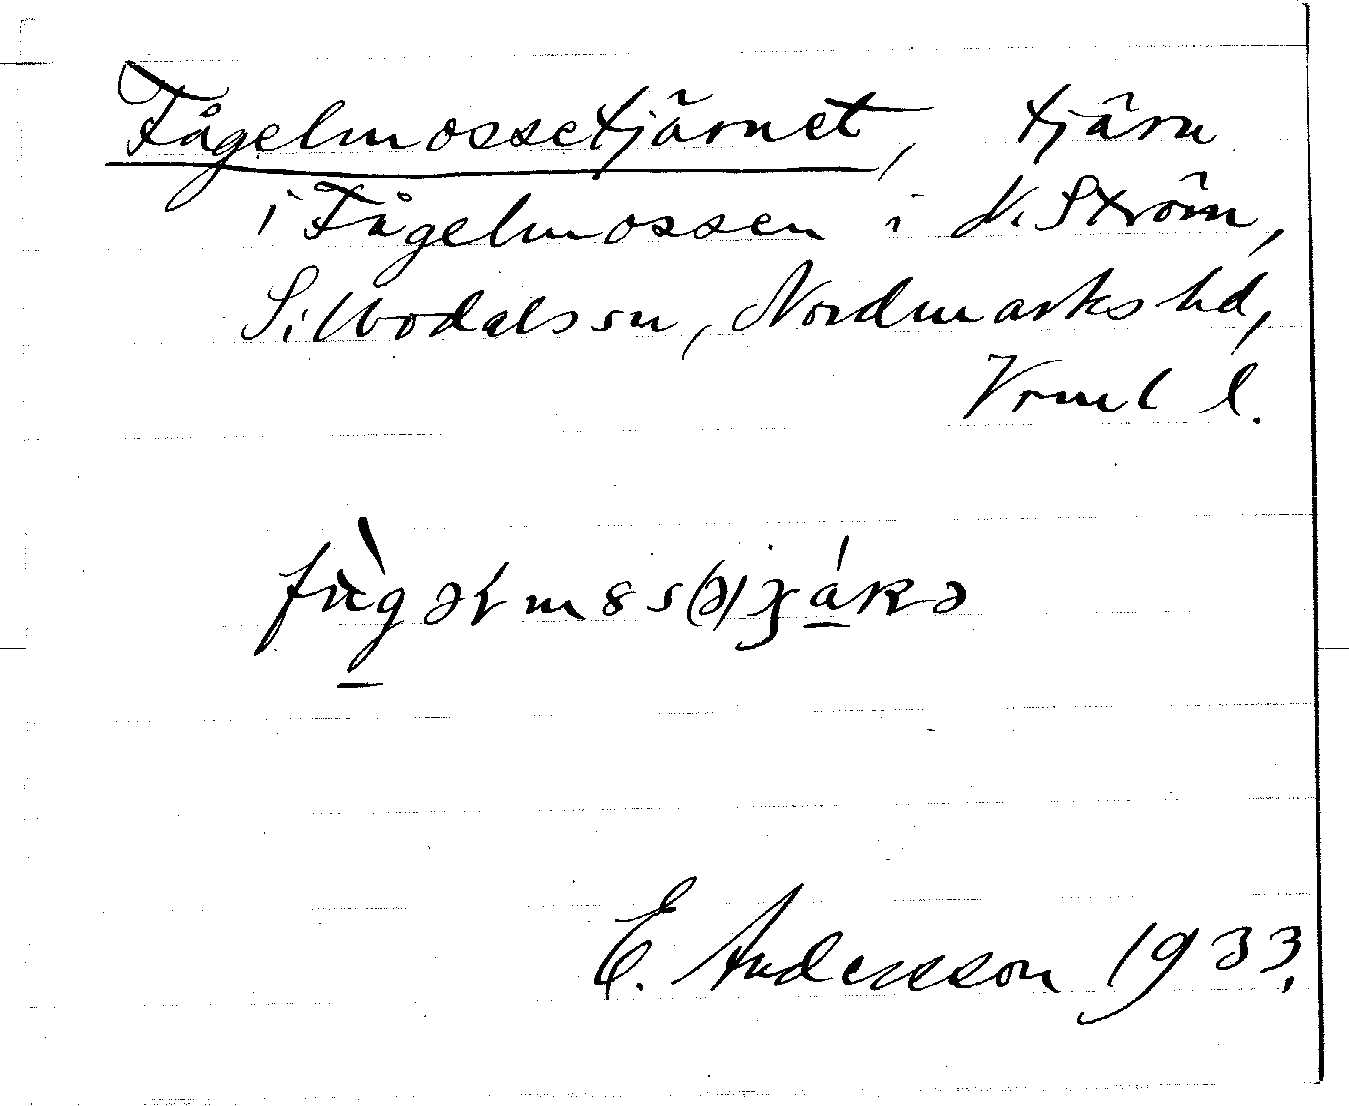 Fågelmossetjärnet, tjärn
i Fågelmossen i N. Ström,
Silbodals sn, Nordmarks hd,
Vrml l.
E. Andersson 1933.